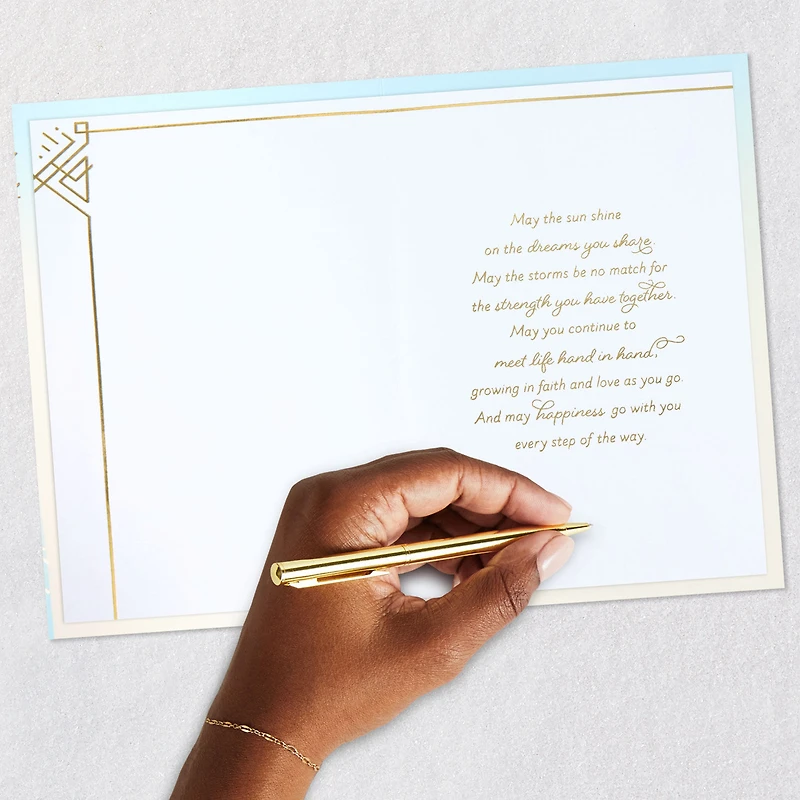 May the sun shine
on the dreams you share.
May the storms be no match for
the strength you have together.
May you continue to
meet life hand in hand,
growing in faith and love as you go.
And may happiness go with you
every step of the way.